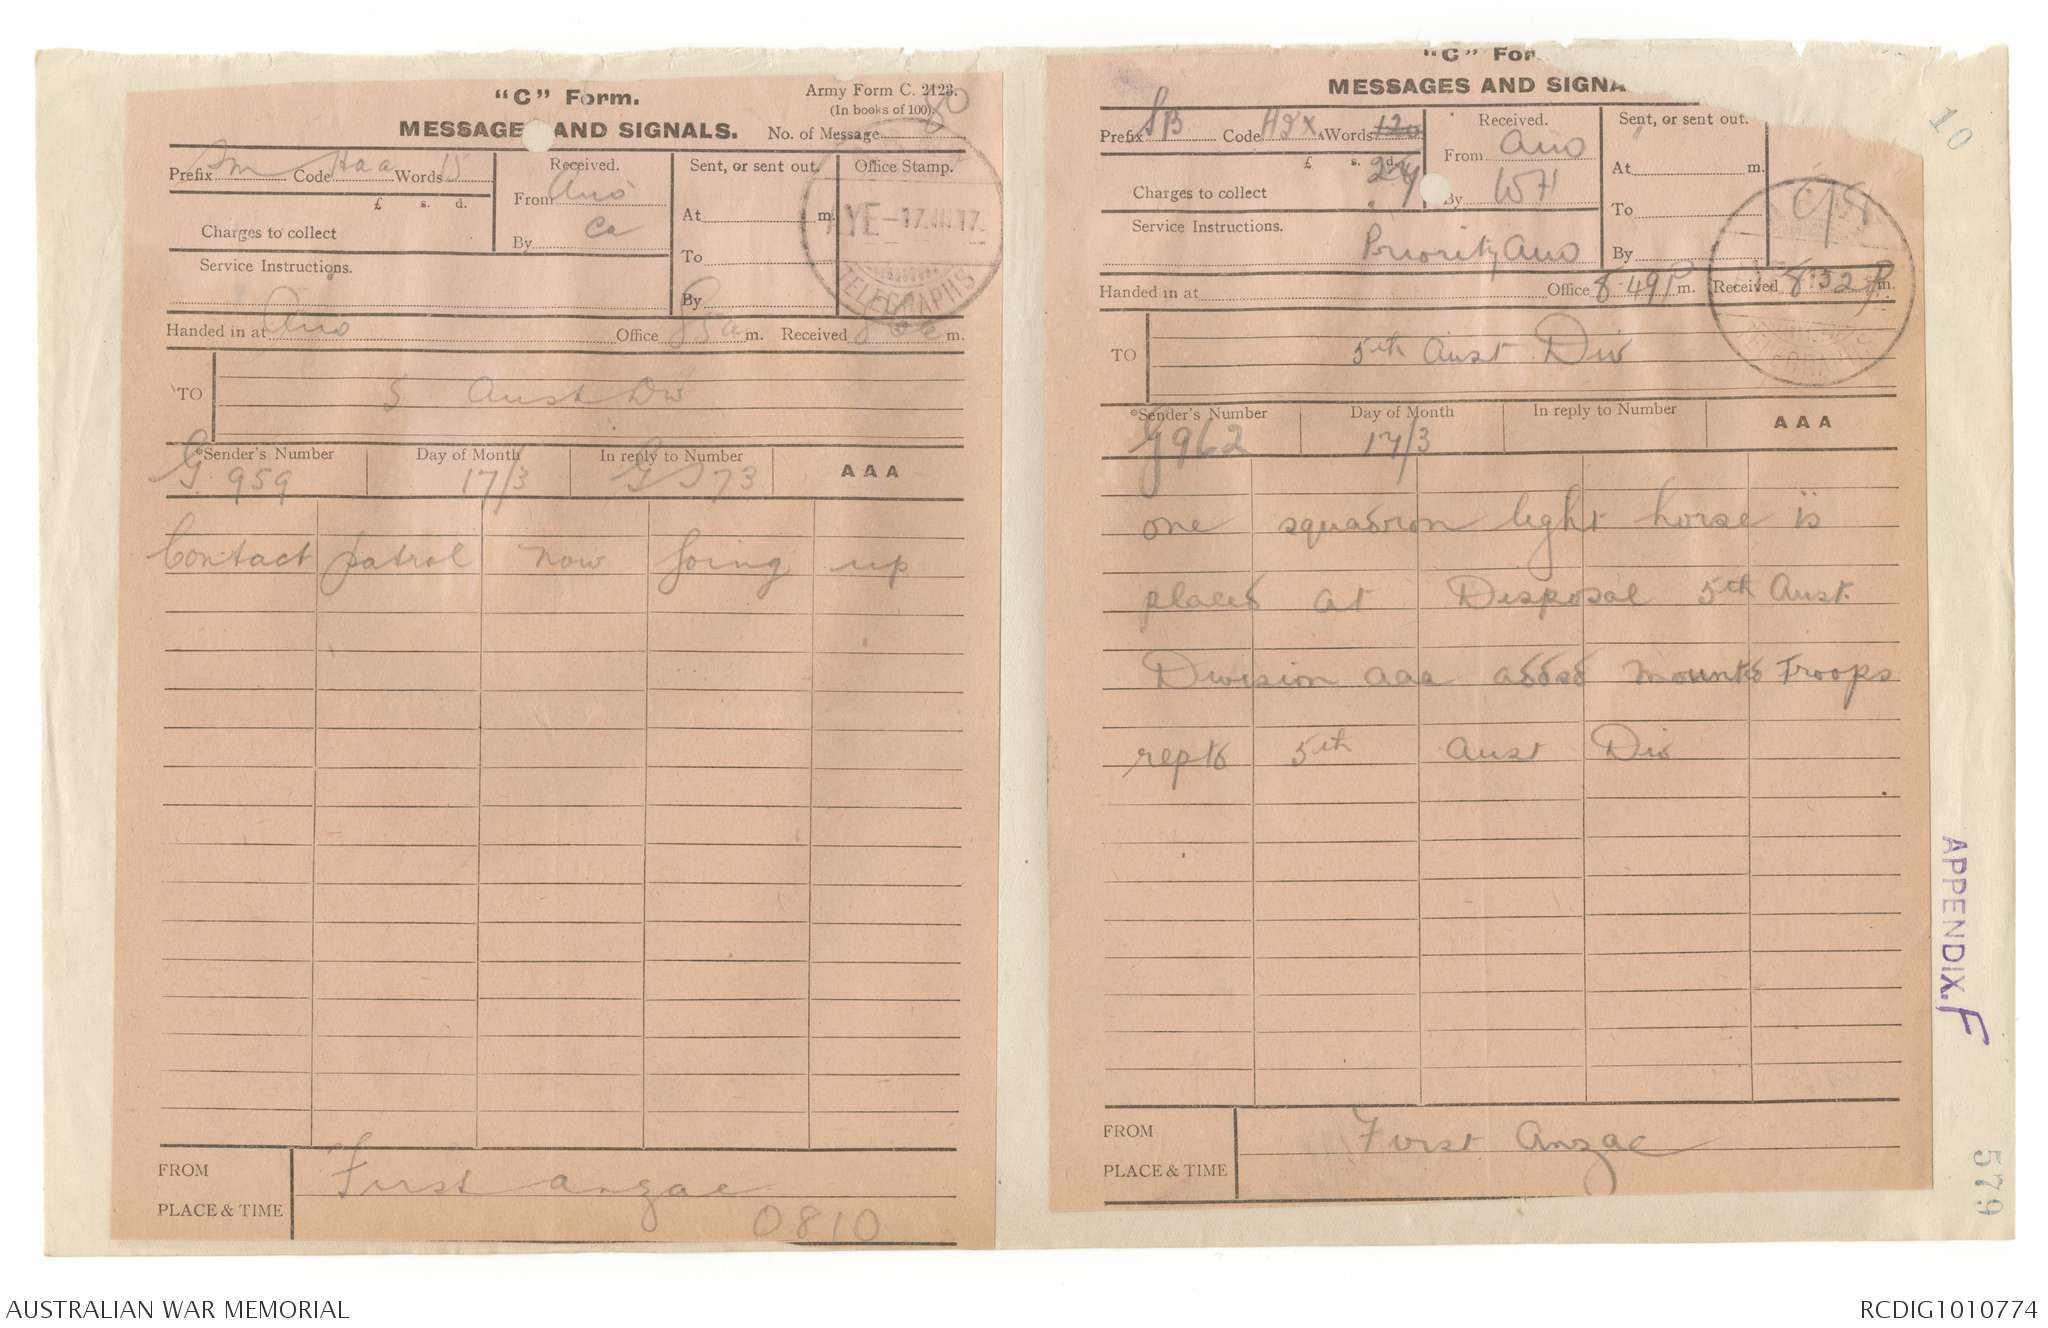 "C" Form.
Army Form C. 2123.
(In books of 100)
MESSAGES AND SIGNALS.
No. of Message 80
Prefix Sm Code Haa Words 15
Received.
From Ano
By Ca
Sent, or sent out.
At m.
To
By
Office Stamp.
AYE -17.III.17.
TELEGRAPHS
£ s. d.
Charges to collect
Service Instructions.
Handed in at Ano Office m. Received m.
TO
5 Aust Div
*Sender's Number
G 959
Day of Month
17/3
In reply to Number
AAA
Contact patrol now going up
FROM
First anzac
PLACE & TIME
0810
"C" For
MESSAGES AND SIGNA
Prefix SB Code Words 120
£ s. d.
Charges to collect
Received.
From Ano
By WH
Sent, or sent out.
At m.
To
By
Service Instructions.
Priority Ano
Handed in at Office 8.49 P m. Received 8.52 P m.
TO
5th Aust Div
*Sender's Number
G962
Day of Month
17/3
In reply to Number
AAA
one squadron light horse is
placed at Disposal 5th Aust.
Division aaa added mounted Troops
reptd 5th Aust Div
FROM
First Anzac
PLACE & TIME
10
APPENDIX. F
579
AUSTRALIAN WAR MEMORIAL
RCDIG1010774